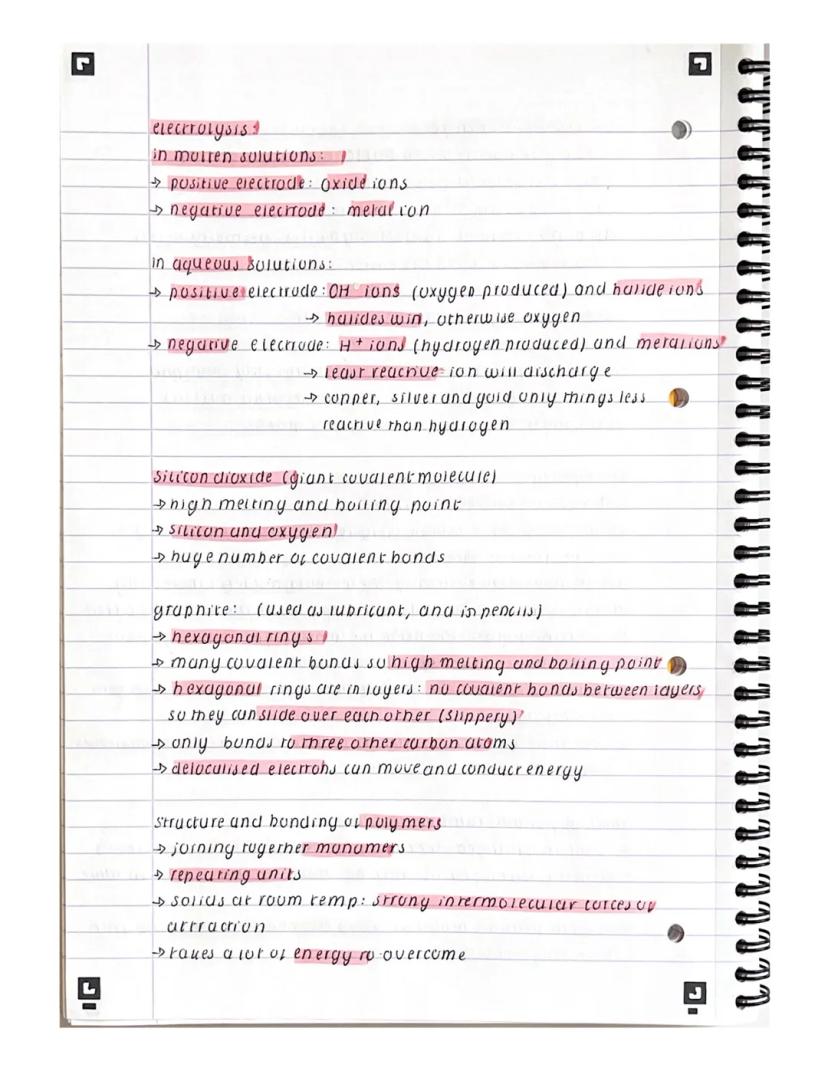 electrolysis:
in molten solutions:
→ positive electrode: oxide ions
→ negative electrode: metal ion
in aqueous solutions:
→ positive electrode: OH⁻ ions (oxygen produced) and halide ions
→ halides win, otherwise oxygen
→ negative electrode: H⁺ ions (hydrogen produced) and metal ions
→ least reactive ion will discharge
→ copper, silver and gold only things less
reactive than hydrogen
silicon dioxide (giant covalent molecule)
→ high melting and boiling point
→ silicon and oxygen
→ huge number of covalent bonds
graphite: (used as lubricant, and in pencils)
→ hexagonal rings
→ many covalent bonds so high melting and boiling point
→ hexagonal rings are in layers: no covalent bonds between layers,
so they can slide over each other (slippery)
→ only bonds to three other carbon atoms
→ delocalised electrons can move and conduct energy
structure and bonding of polymers
→ joining together monomers
→ repeating units
→ solids at room temp: strong intermolecular forces of
attraction
→ takes a lot of energy to overcome